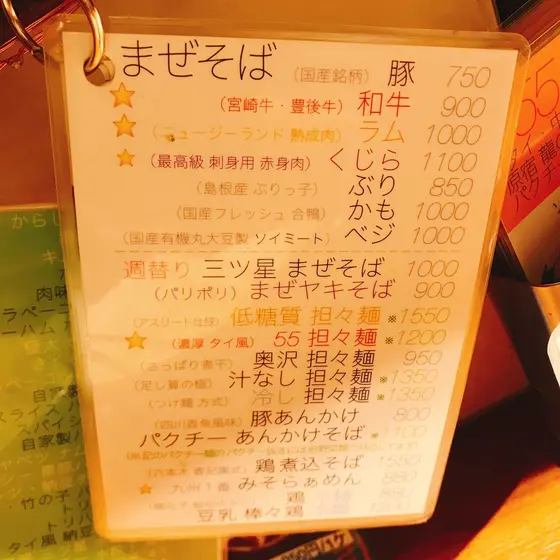 まぜそば (国産銘柄) 豚 750
(宮崎牛・豊後牛) 和牛 900
(ニュージーランド 熟成肉) ラム 1000
(最高級 刺身用 赤身肉) くじら 1100
(島根産 ぶりっ子) ぶり 850
(国産フレッシュ 合鴨) かも 1000
(国産有機丸大豆製 ソイミート) ベジ 1000
週替り 三ツ星 まぜそば 1000
(パリポリ) まぜヤキそば 900
(アスリート仕様) 低糖質 担々麺 ※1550
(濃厚 タイ風) 55 担々麺 ※1200
(さっぱり煮干) 奥沢 担々麺 950
(足し算の極) 汁なし 担々麺 ※1350
(つけ麺 方式) 冷し 担々麺 ※1350
(四川魚風味) 豚あんかけ 800
パクチー あんかけそば
鶏煮込そば 1550
九州1番 みそらぁめん 880
鶏
豆乳 棒々鶏
からし
肉味
自家製
スライス
スパイシ
自家製
竹の子
トリ
タイ風 納豆
55
タイ
原宿
パクチ